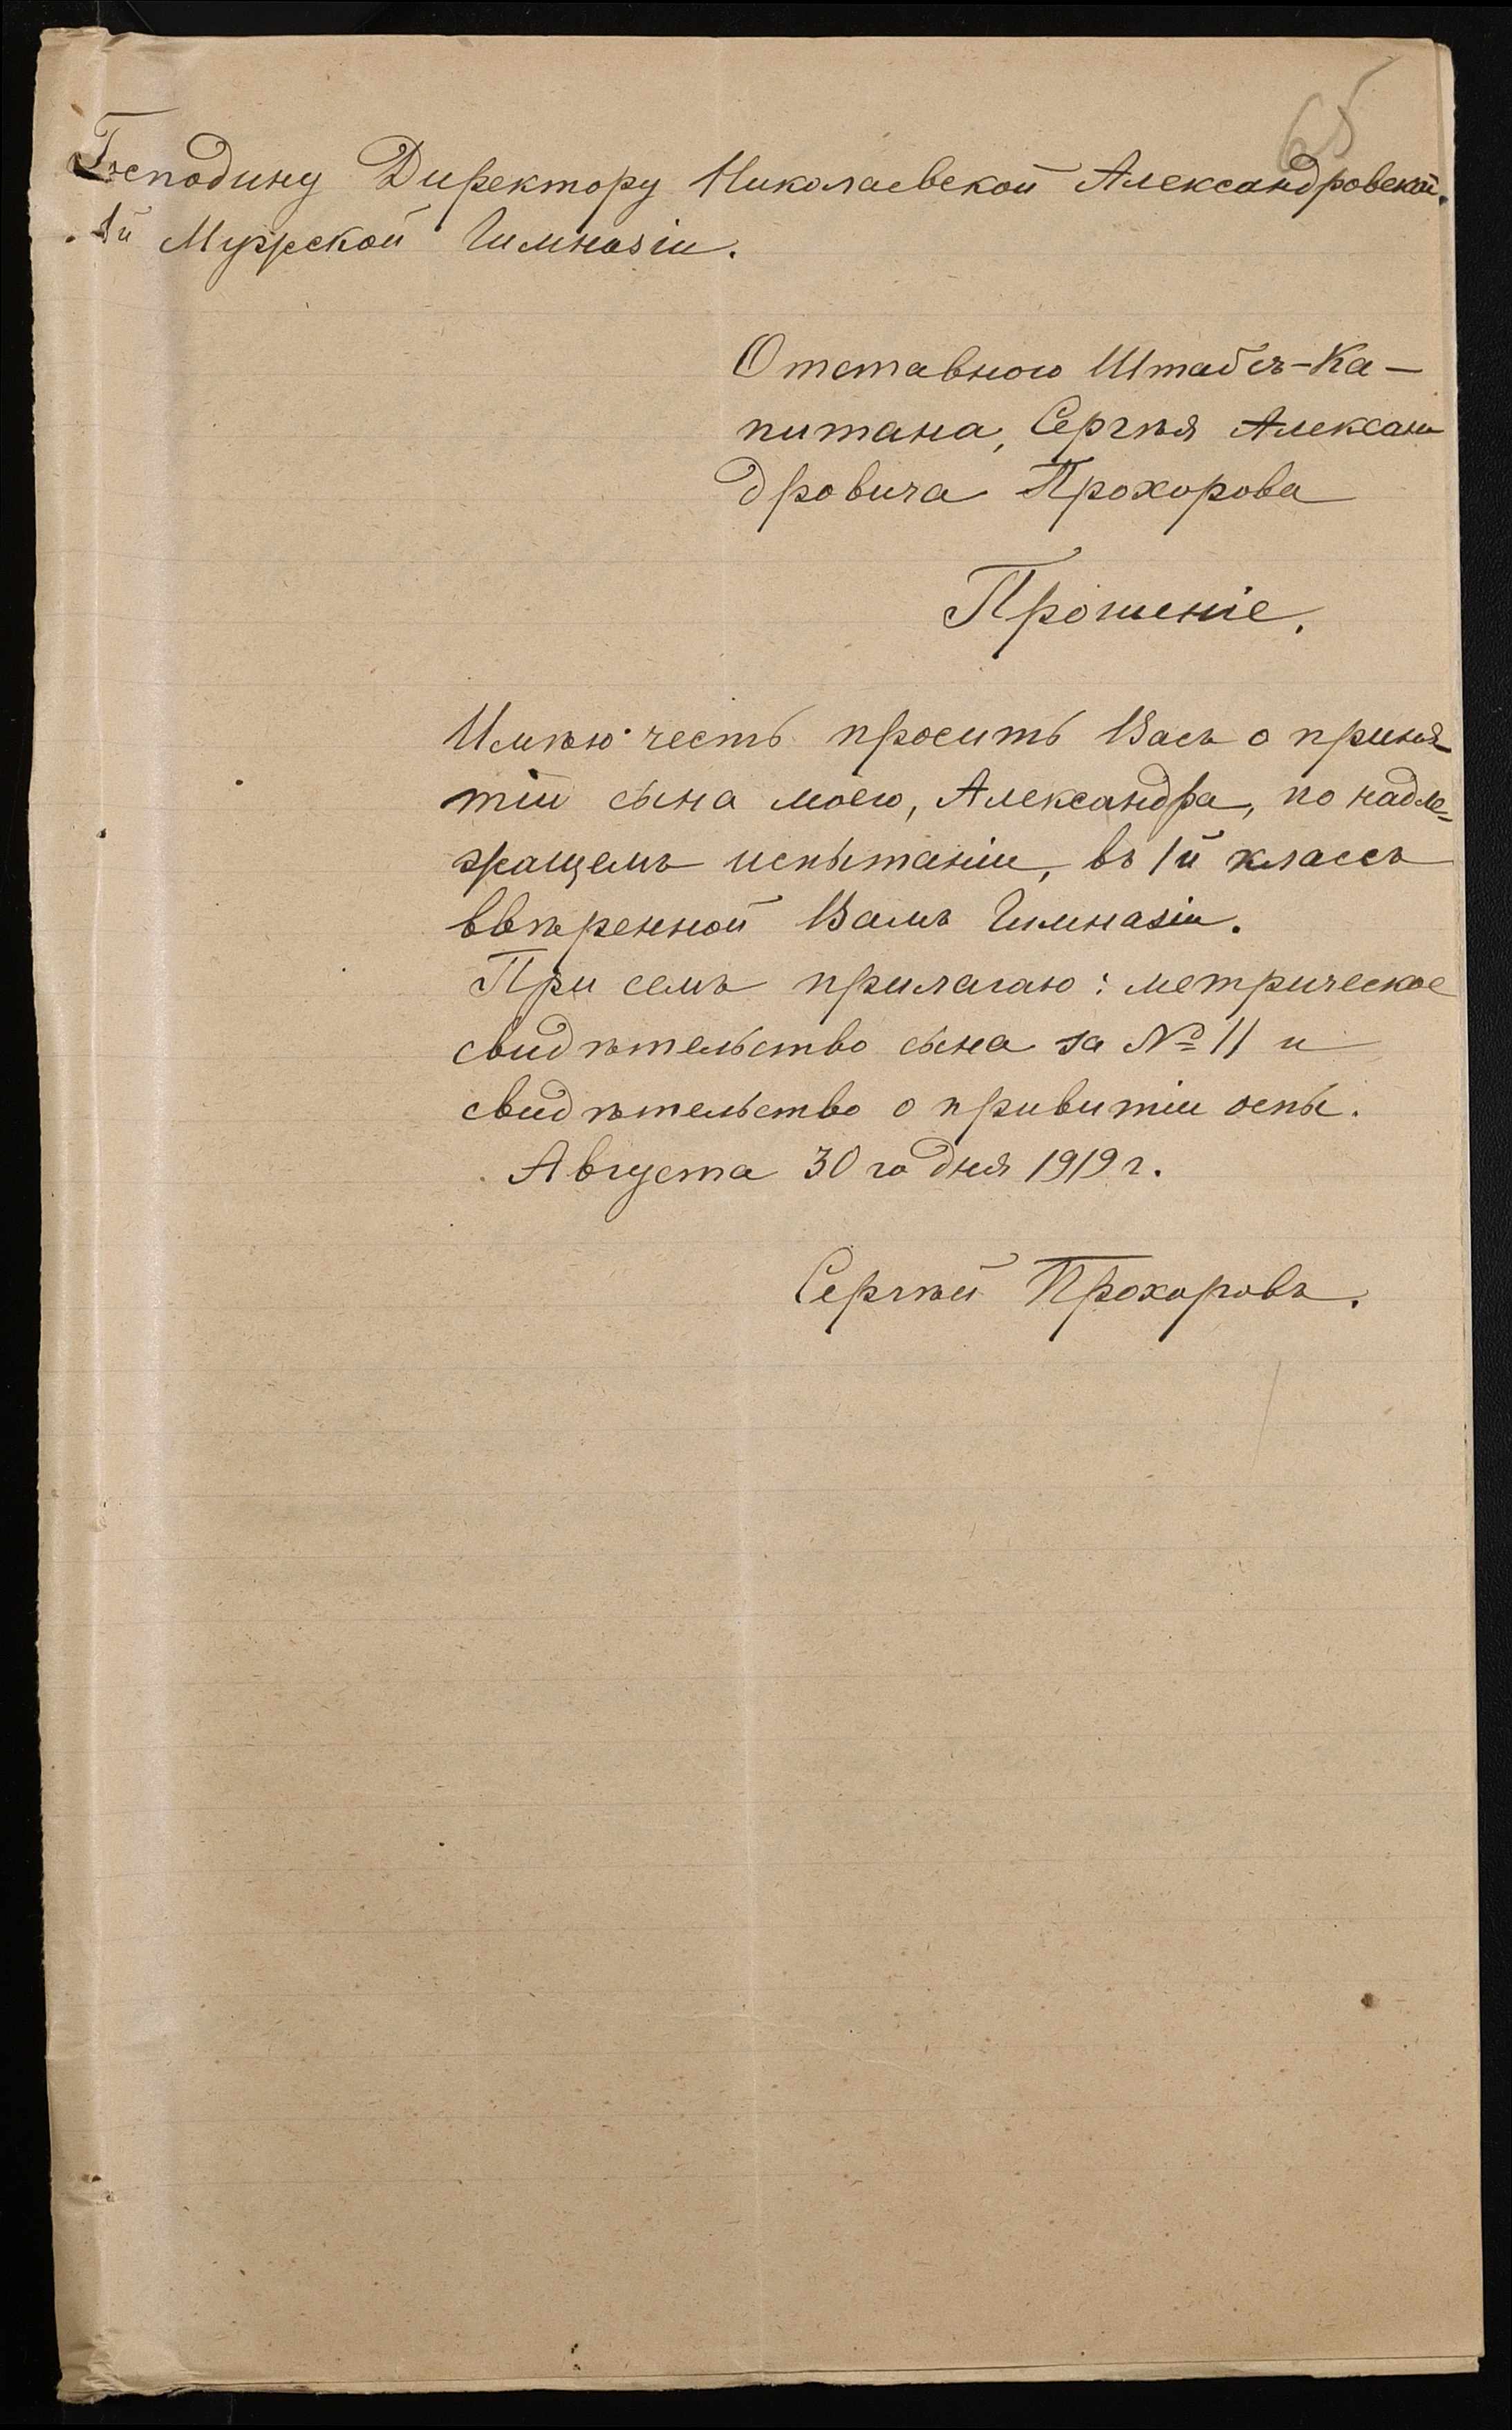 65
Господину Директору Николаевской Александровской
1й Мужской Гимназіи.
Отставного Штабсъ-Ка-
питана, Сергѣя Алексан
дровича Прохорова
Прошеніе.
Имѣю честь просить Васъ о приня
тіи сына моего, Александра, по надле=
жащемъ испытаніи, въ 1й классъ
ввѣренной Вамъ Гимназіи.
При семъ прилагаю: метрическое
свидѣтельство сына за № 11 и
свидѣтельство о привитіи оспы.
Августа 30го дня 1919 г.
Сергѣй Прохоровъ.